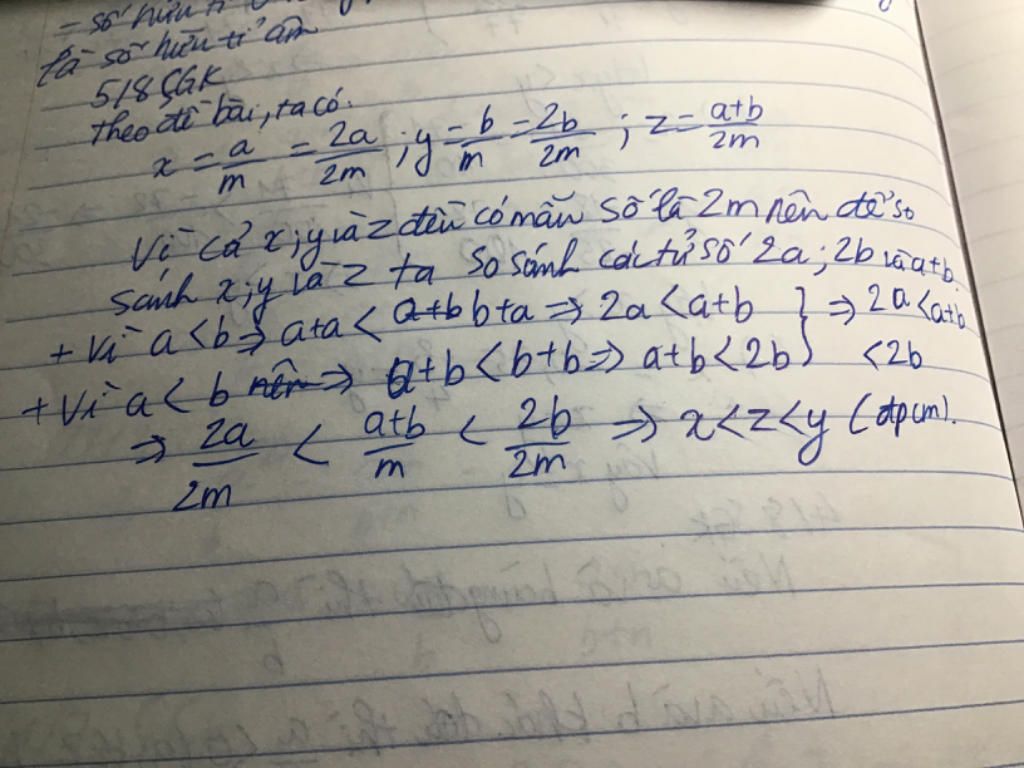 = số hữu tỉ
là số hữu tỉ âm
5/8 SGK
Theo đề bài, ta có.
x = a/m = 2a/2m ; y = b/m = 2b/2m ; z = a+b/2m
Vì cả x; y và z đều có mẫu số là 2m nên để so
sánh x; y và z ta so sánh các tử số 2a; 2b và a+b.
+ Vì a < b => a+a < a+b b+a => 2a < a+b } => 2a < a+b
+ Vì a < b nên => a+b < b+b => a+b < 2b } < 2b
=> 2a/2m < a+b/m < 2b/2m => x < z < y (đpcm).